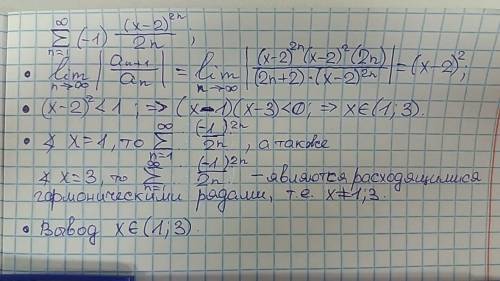 ∑_{n=1}^{∞} (-1) (x-2)^{2n} / 2n ;
• lim_{n→∞} |a_{n+1} / a_n| = lim_{n→∞} |(x-2)^{2n} (x-2)^2 (2n) / (2n+2)·(x-2)^{2n}| = (x-2)^2;
• (x-2)^2 < 1 ; ⇒ (x-1)(x-3)<0; ⇒ x∈(1;3).
• ∢ x=1, то ∑_{n=1}^{∞} (-1)^{2n} / 2n , а также
∢ x=3, то ∑_{n=1}^{∞} (-1)^{2n} / 2n - являются расходящимися
гармоническими рядами, т.е. x≠1;3.
• Вывод x∈(1;3).